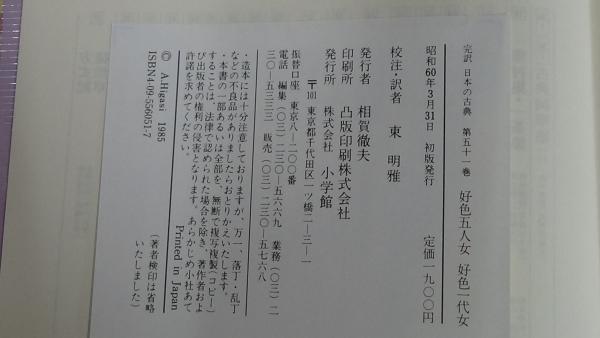 完訳 日本の古典 第五十一巻 好色五人女 好色一代女
昭和60年3月31日 初版発行 定価一九〇〇円
校注・訳者 東 明雅
発行者 相賀徹夫
印刷所 凸版印刷株式会社
発行所 株式会社 小学館
〒101 東京都千代田区一ツ橋二―三―一
振替口座 東京八―二〇〇番
電話 編集(〇三)二三〇―五六六九 業務(〇三)二
三〇―五三三三 販売(〇三)二三〇―五七六八
・造本には十分注意しておりますが、万一、落丁・乱丁
などの不良品がありましたらおとりかえいたします。
・本書の一部あるいは全部を、無断で複写複製(コピー)
することは、法律で認められた場合を除き、著作者およ
び出版者の権利の侵害となります。あらかじめ小社あて
許諾を求めてください。
Printed in Japan
© A.Higasi 1985
(著者検印は省略
いたしました)
ISBN4-09-556051-7